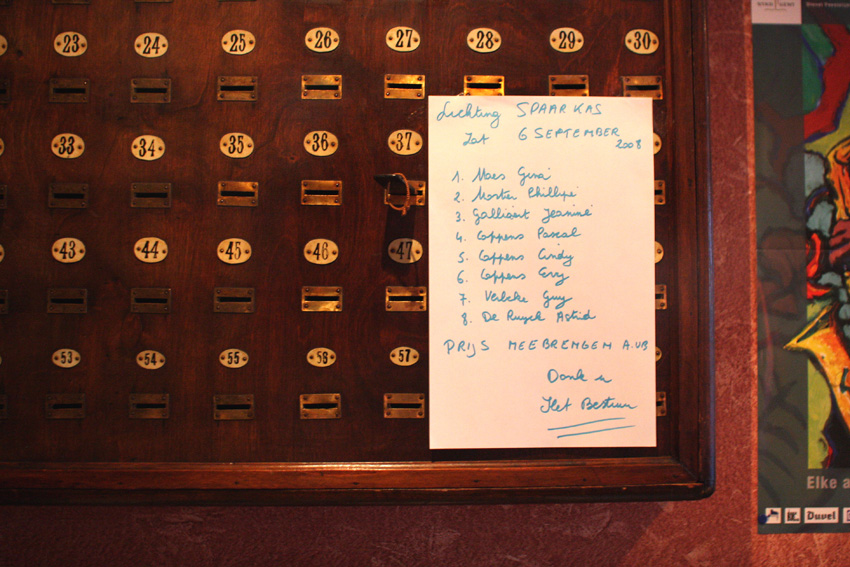 23 24 25 26 27 28 29 30
33 34 35 36 37
43 44 45 46 47
53 54 55 56 57
Lichting SPAARKAS
Zat 6 SEPTEMBER
2008
1. Maes Gina
2. Martin Phillipe
3. Galliaert Jeanine
4. Coppens Pascal
5. Coppens Cindy
6. Coppens Eny
7. Verbeke Guy
8. De Ruyck Astrid
PRIJS MEEBRENGEN A.UB
Dank u
Het Bestuur
Elke a
Duvel